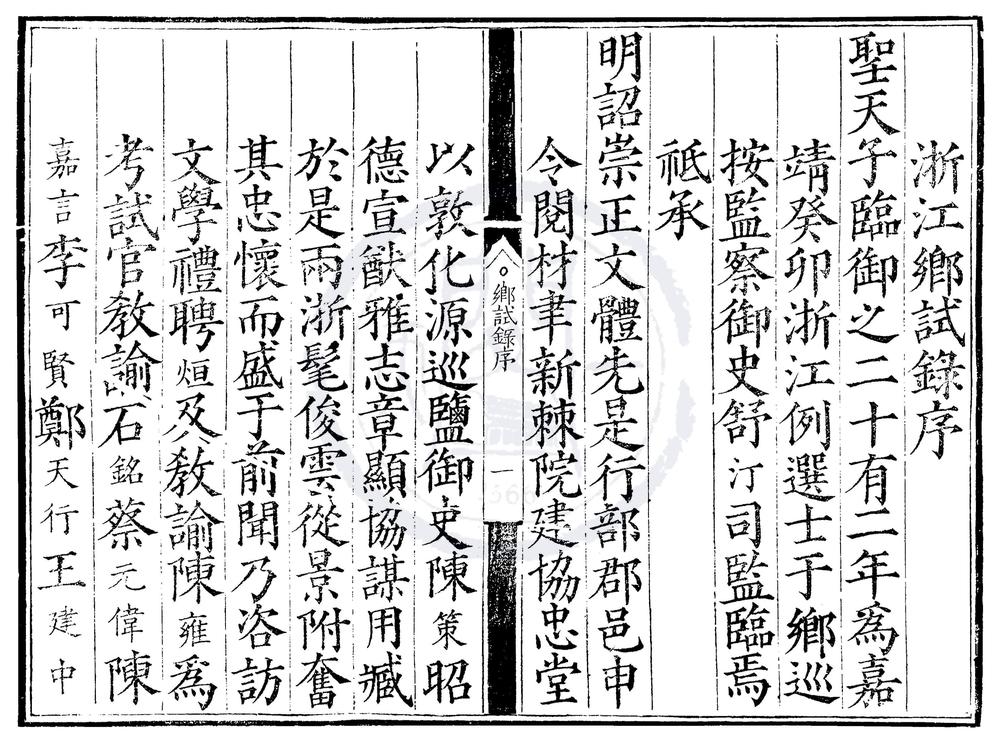 浙江鄉試錄序
聖天子臨御之二十有二年為嘉
靖癸卯浙江例選士于鄉巡
按監察御史舒汀司監臨焉
祗承
明詔崇正文體先是行部郡邑申
令閱材聿新棘院建協忠堂
鄉試錄序
一
以敦化源巡鹽御史陳策昭
德宣猷雅志章顯協謀用臧
於是兩浙髦俊雲從景附奮
其忠懷而盛于前聞乃咨訪
文學禮聘烜及教諭陳雍為
考試官教諭石銘蔡元偉陳
嘉言李可賢鄭天行王建中